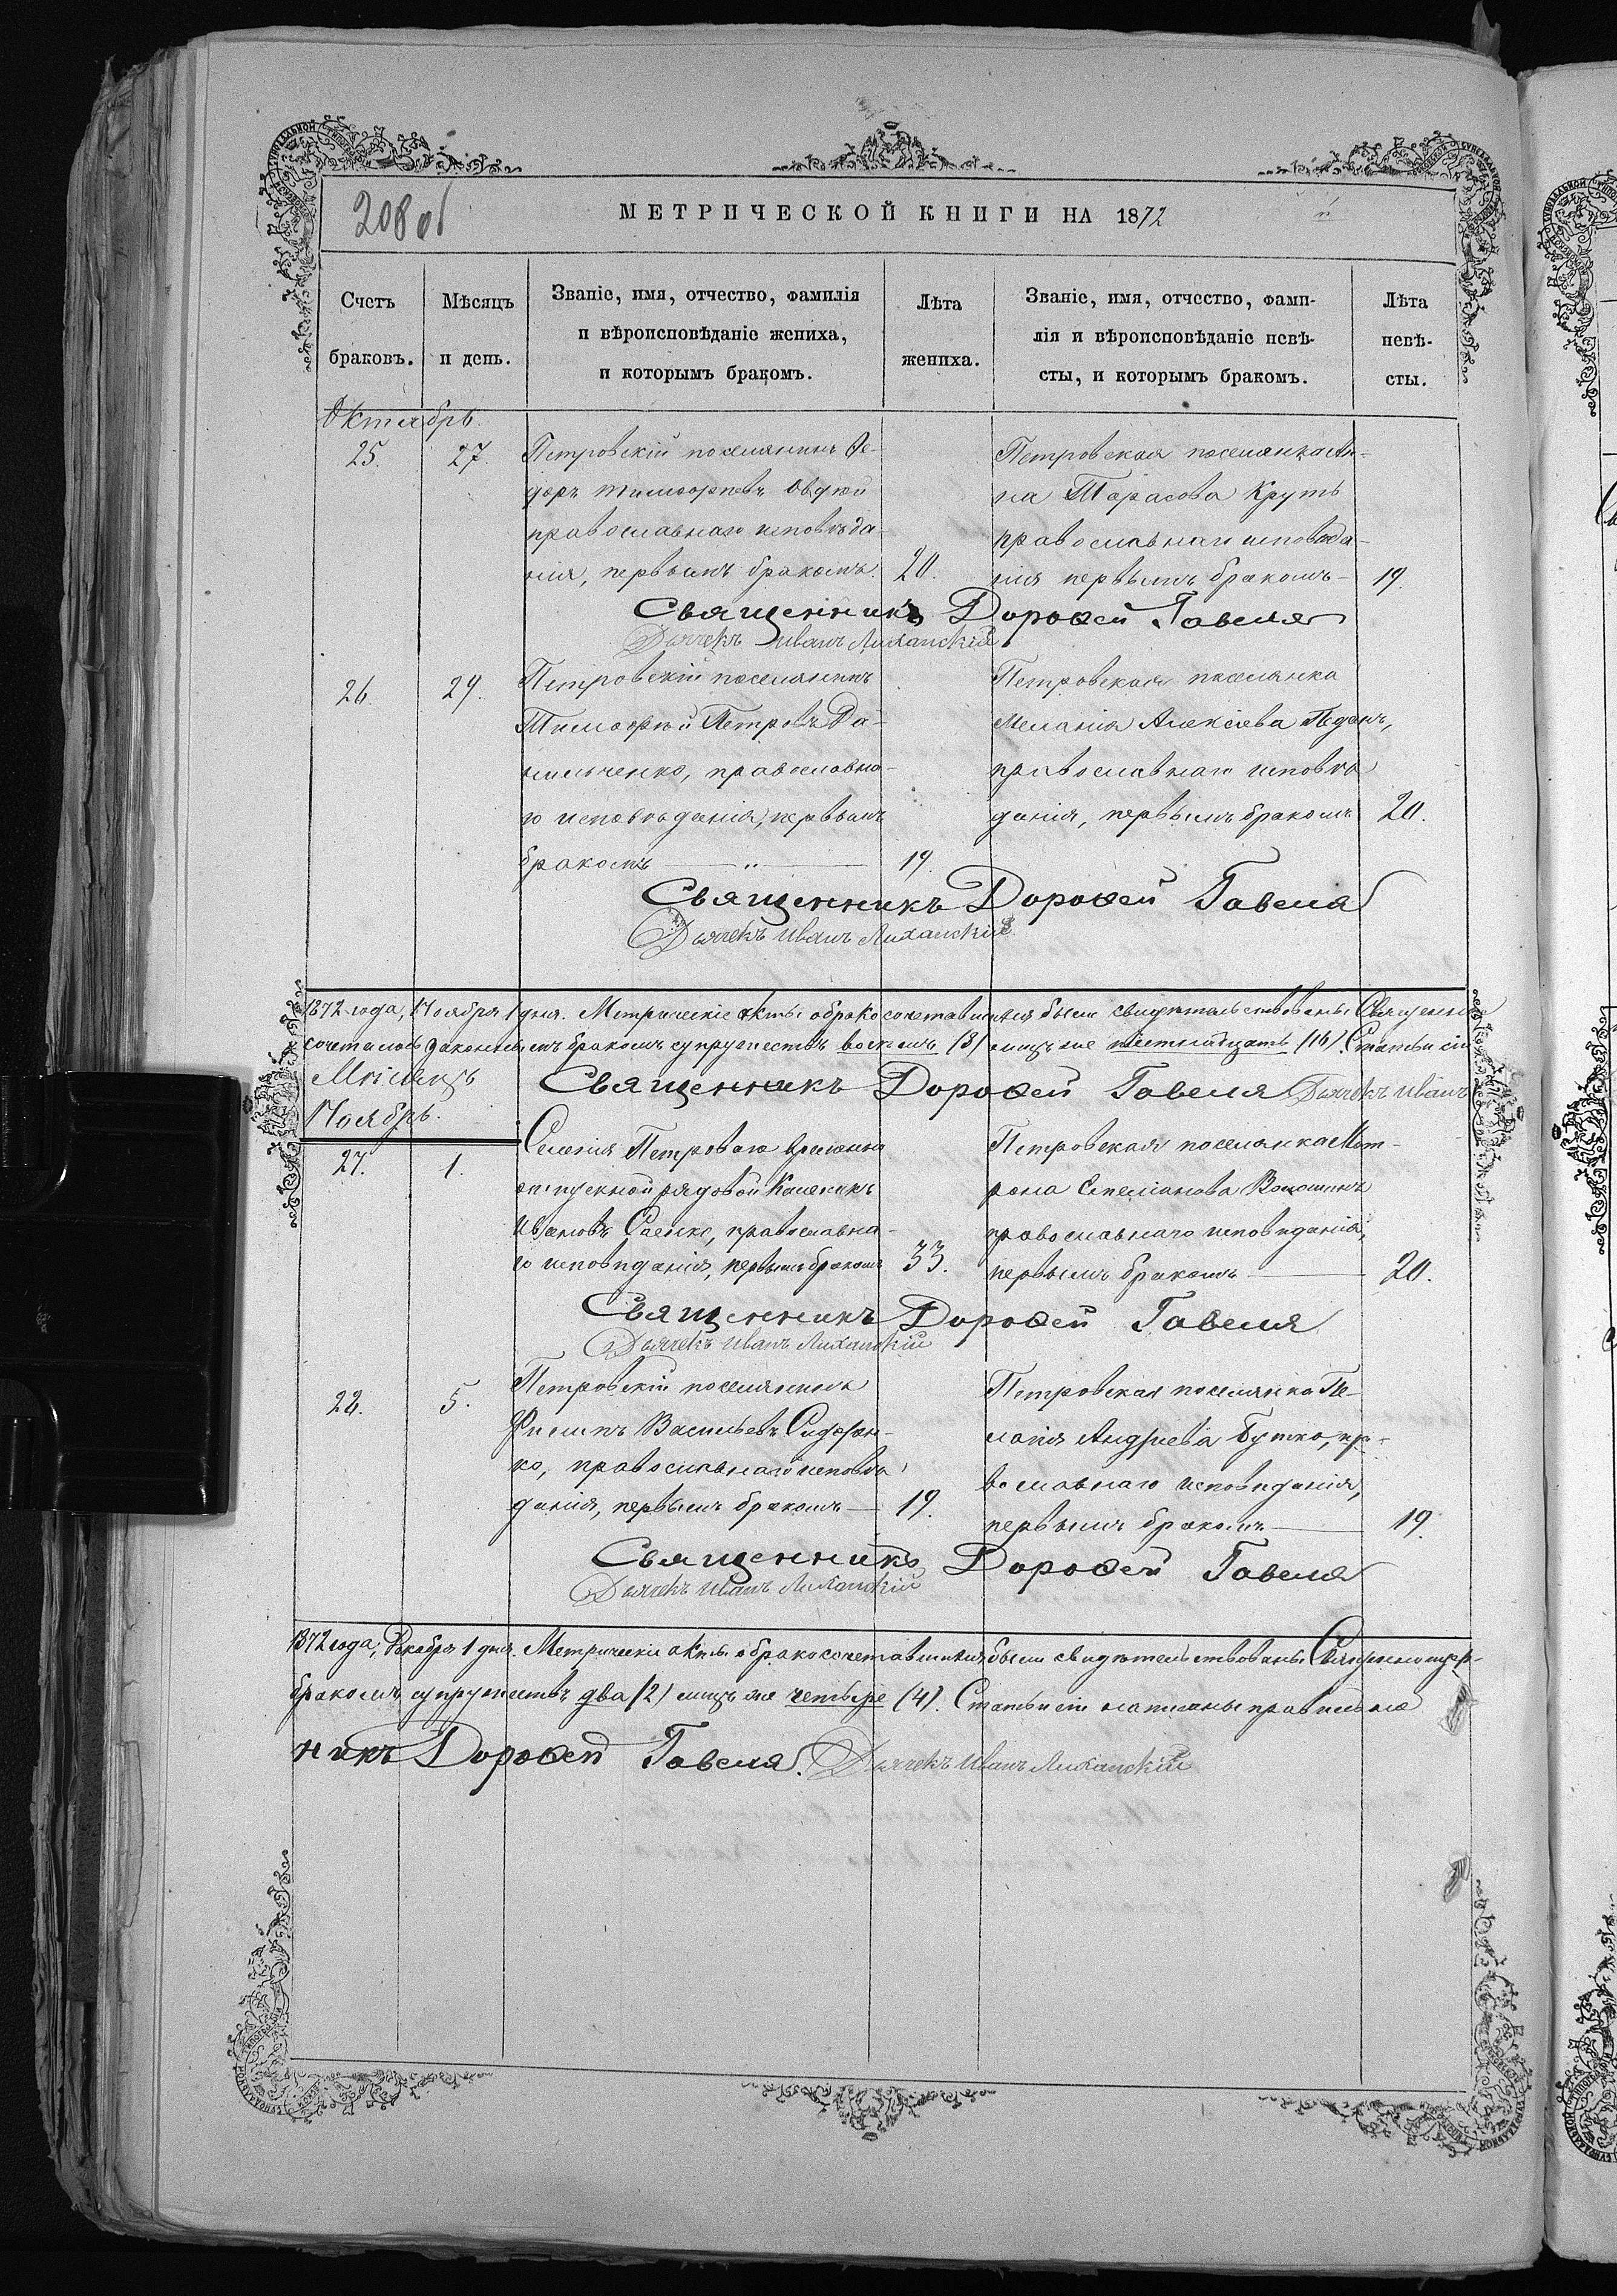 208 об
МЕТРИЧЕСКОЙ КНИГИ НА 1872
Счетъ браковъ.
Мѣсяцъ и день.
Званіе, имя, отчество, фамилія
и вѣроисповѣданіе жениха,
и которымъ бракомъ.
Лѣта жениха.
Званіе, имя, отчество, фами-
лія и вѣроисповѣданіе невѣ-
сты, и которымъ бракомъ.
Лѣта невѣ-
сты.
Октябрь.
25. 27.
Петровскій поселянинъ Ѳе-
доръ Тимофѣевъ Овдѣй
православнаго исповѣда-
нія, первымъ бракомъ. 20.
Петровская поселянка Ан-
на Тарасова Круть
православнаго исповѣда-
нія первымъ бракомъ 19.
Священникъ Дороѳей Гавеля
Дьячекъ Иванъ Лиханскій
26. 29.
Петровскій поселянинъ
Тимофѣй Петровъ Да-
нильченко, православна-
го исповѣданія, первымъ
бракомъ 19.
Петровская поселянка
Меланія Алексіева Педань,
православнаго исповѣ
данія, первымъ бракомъ 20.
Священникъ Дороѳей Гавеля
Дьячекъ Иванъ Лиханскій
1872 года, Ноября 1 дня. Метрическіе акты о бракосочетавшихся были свидѣтельствованы Священно
сочеталось законнымъ бракомъ супружествъ восемь (8) лицъ же шестнадцать (16). Статьи сіи
Мѣсяцъ
Ноябрь.
Священникъ Дороѳей Гавеля Дьячекъ Иванъ
27. 1.
Селенія Петроваго временно
отпускной рядовой
Ивановъ Саенко, православна-
го исповѣданія, первымъ бракомъ 33.
Петровская поселянка Мат-
рона Степанова Волошинъ
православнаго исповѣданія,
первымъ бракомъ 20.
Священникъ Дороѳей Гавеля
Дьячекъ Иванъ Лиханскій
28. 5.
Петровскій поселянинъ
Филипъ Васильевъ Сидорен-
ко, православнаго исповѣ
данія, первымъ бракомъ 19.
Петровская поселянка Пе-
лагія Андреева Бутко, пра-
вославнаго исповѣданія,
первымъ бракомъ 19.
Священникъ Дороѳей Гавеля
Дьячекъ Иванъ Лиханскій
1872 года, Декабря 1 дня. Метрическіе акты о бракосочетавшихся были свидѣтельствованы Священноцер-
бракомъ супружествъ два (2) лицъ же четыре (4). Статьи сіи написаны правильно
никъ Дороѳей Гавеля. Дьячекъ Иванъ Лиханскій